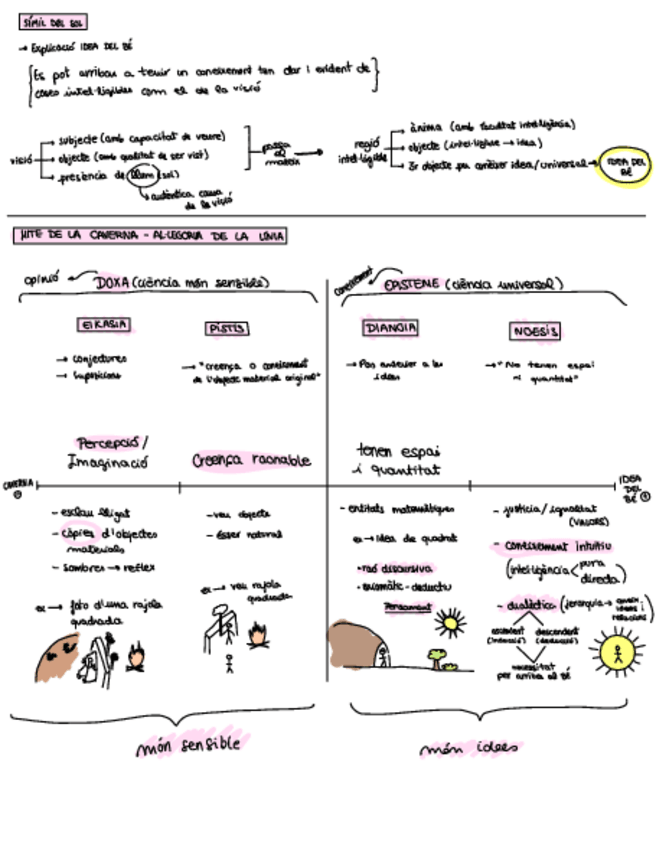 SÍMIL DEL SOL
→ Explicació IDEA DEL BÉ
Es pot arribar a tenir un coneixement tan clar i evident de
coses intel·ligibles com el de la visió
visió
subjecte (amb capacitat de veure)
objecte (amb qualitat de ser vist)
presència de llum (sol)
autèntica causa
de la visió
passa
al
mateix
regió
intel·ligible
ànima (amb facultat intel·ligència)
objecte (intel·ligible → idea)
3r objecte per conèixer idea/universal →
IDEA DEL
BÉ
MITE DE LA CAVERNA - AL·LEGORIA DE LA LÍNIA
opinió
DOXA (ciència món sensible)
coneixement
EPISTEME (ciència universal)
EIKASIA
→ conjectures
→ suposicions
PISTIS
→ "creença o coneixement
de l'objecte material original"
DIANOIA
idees
NOESIS
→ "No tenen espai
ni quantitat"
Percepció/
Imaginació
Creença raonable
tenen espai
i quantitat
CAVERNA
IDEA
DEL
BÉ
- esclau lligat
- còpies d'objectes
materials
- sombres → reflex
ex → foto d'una rajola
quadrada
- veu objecte
- ésser natural
ex → veu rajola
quadrada
- entitats matemàtiques
ex → Idea de quadrat
- raó discursiva
- axiomàtic-deductiu
Pensament
- justícia/igualtat
(VALORS)
- coneixement intuïtiu
(intel·ligència < pura
directa)
- dialèctica (jerarquia →
idees i
relacions)
ascendent descendent
(inducció) (deducció)
necessitat
per arribar al BÉ
món sensible
món idees